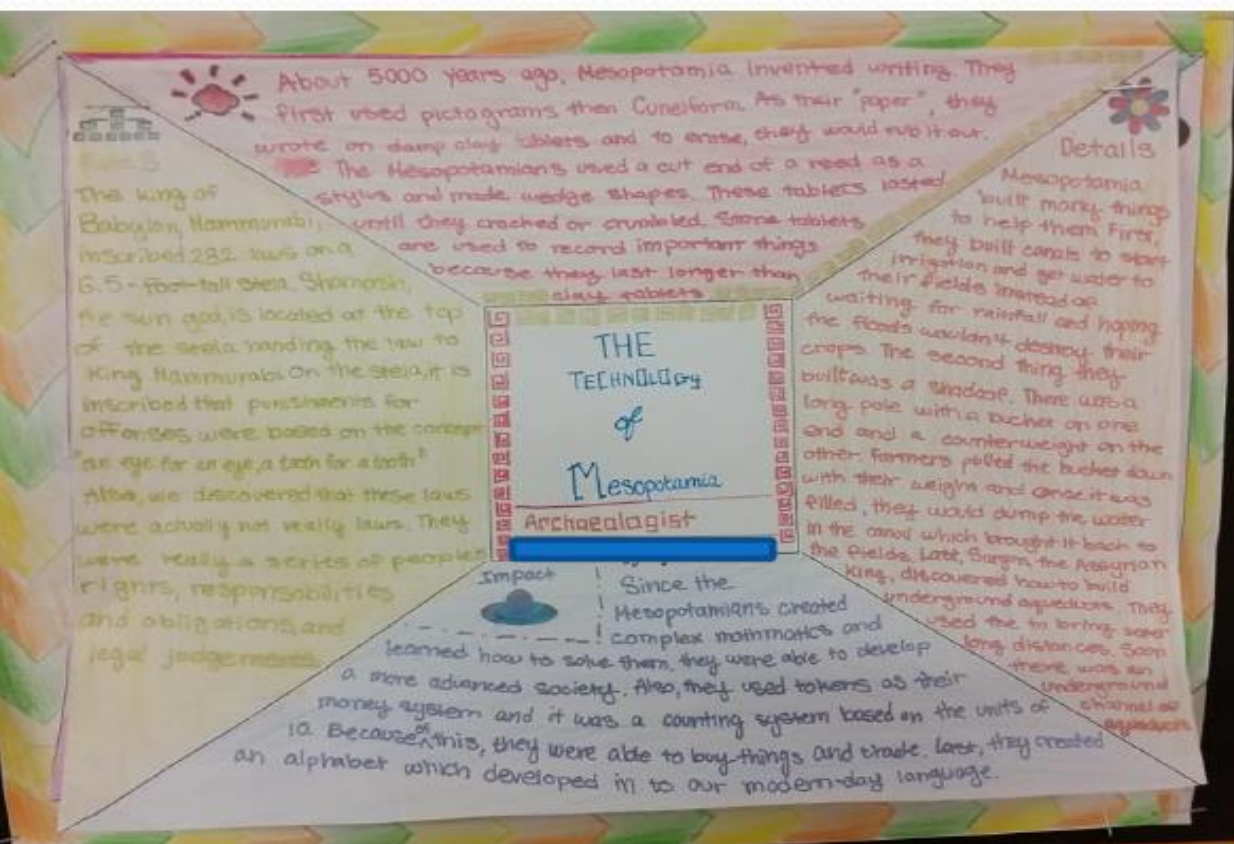 About 5000 years ago, Mesopotamia invented writing. They
first used pictograms then Cuneiform. As their "paper", they
wrote on damp clay tablets and to erase, they would rub it out.
The Mesopotamians used a cut end of a reed as a
stylus and made wedge shapes. These tablets lasted
until they cracked or crumbled. Stone tablets
are used to record important things
because they last longer than
clay tablets
Rules
The king of
Babylon, Hammurabi,
inscribed 282 laws on a
6.5-foot-tall stela. Shamash,
the sun god, is located at the top
of the stela handing the law to
King Hammurabi. On the stela, it is
inscribed that punishments for
offenses were based on the concept
"an eye for an eye, a tooth for a tooth"
Also, we discovered that these laws
were actually not really laws. They
were really a series of peoples
rights, responsobilities
and obligations, and
legal judgements.
THE
TECHNOLOGY
of
Mesopotamia
Archaealagist
Details
Mesopotamia
built many things
to help them. First,
they built canals to start
irrigation and get water to
their fields instead of
waiting for rainfall and hoping
the floods wouldn't destroy their
crops. The second thing they
built was a shadoof. There was a
long pole with a bucket on one
end and a counterweight on the
other. Farmers pulled the bucket down
with their weight and once it was
filled, they would dump the water
in the canal which brought it back to
the fields. Late, Sargon, the Assyrian
King, discovered how to build
underground aqueducts. They
used the to bring water
long distances. Soon
there was an
underground
channel of
aqueducts
Impact
Since the
Mesopotamians created
complex mathmatics and
learned how to solve them, they were able to develop
a more advanced society. Also, they used tokens as their
money system and it was a counting system based on the units of
10. Because of this, they were able to buy things and trade. Last, they created
an alphabet which developed in to our modern-day language.